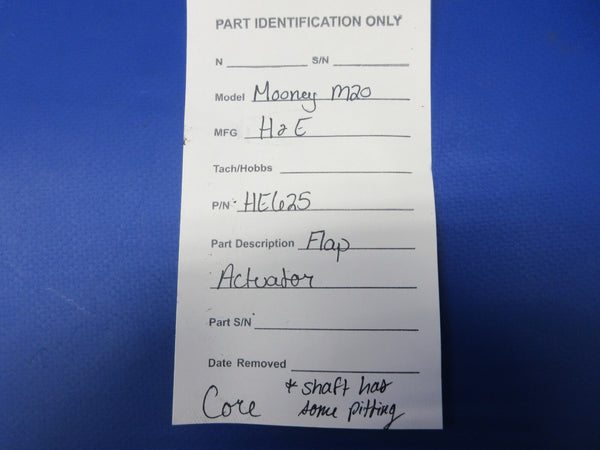 PART IDENTIFICATION ONLY
N S/N
Model Mooney M20
MFG H & E
Tach/Hobbs
P/N HE625
Part Description Flap
Actuator
Part S/N
Date Removed
Core * shaft has
some pitting